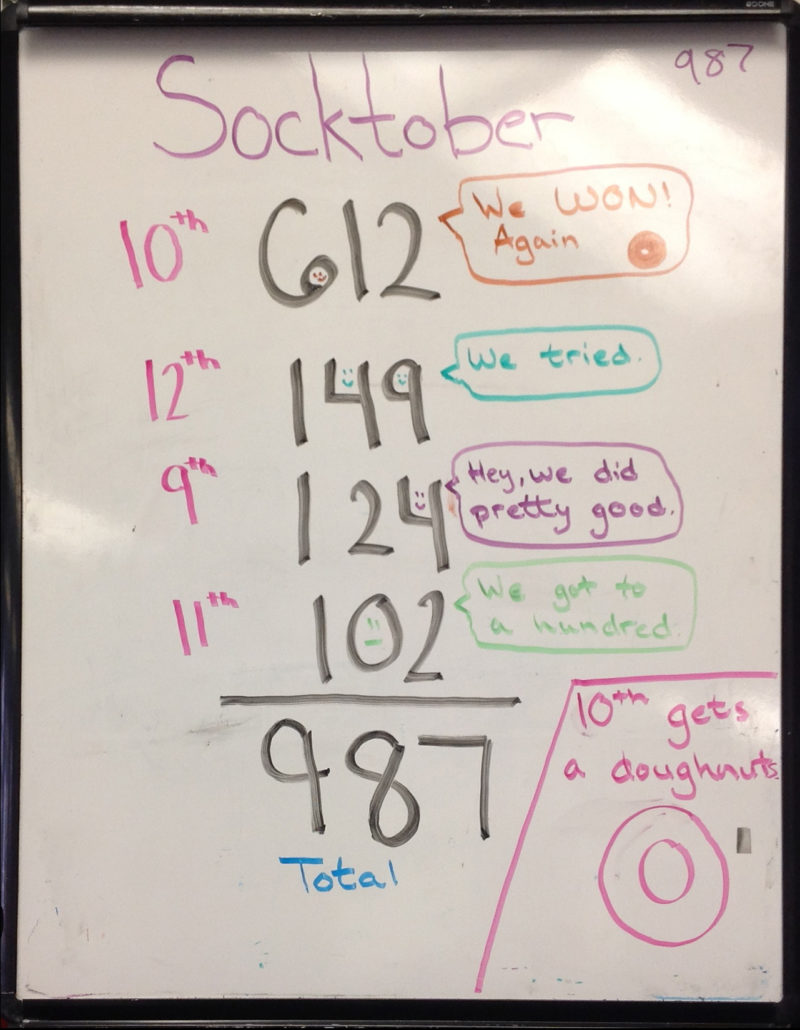 987
Socktober
10th 612 We WON!
Again
12th 149 We tried.
9th 124 Hey, we did
pretty good.
11th 102 We got to
a hundred.
987
Total
10th gets
a doughnuts